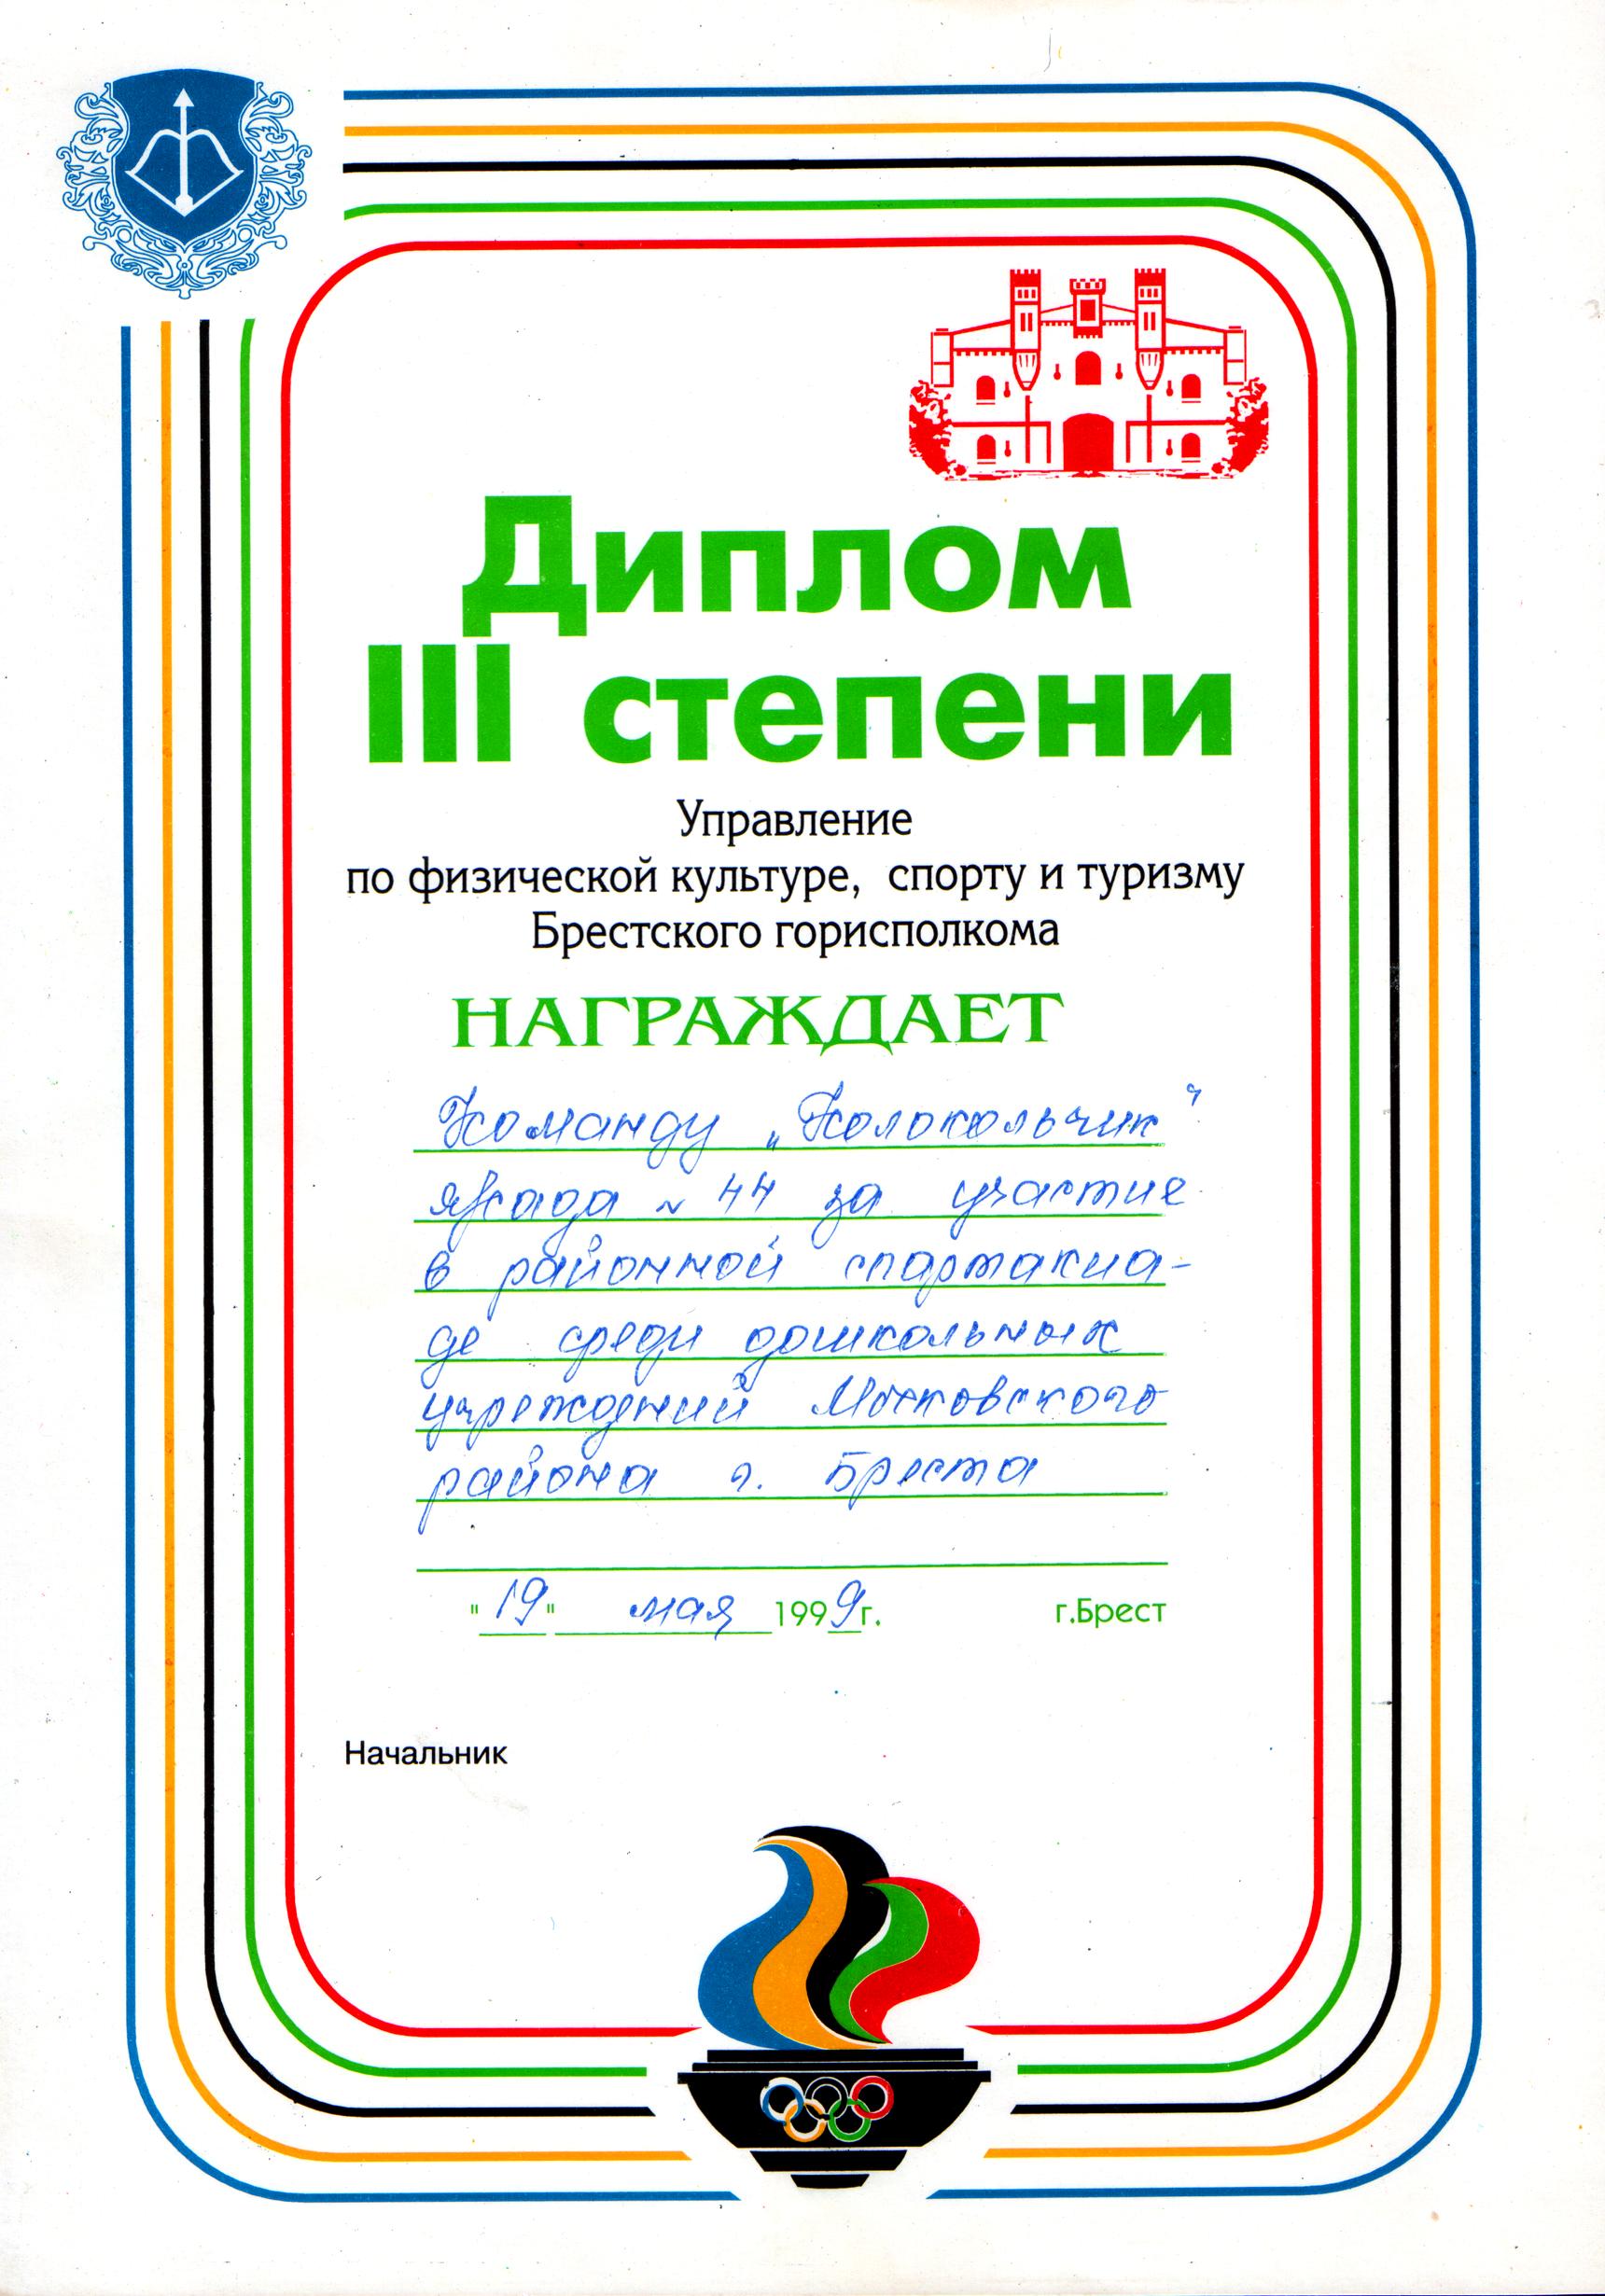 Диплом
III степени
Управление
по физической культуре, спорту и туризму
Брестского горисполкома
НАГРАЖДАЕТ
Команду „Колокольчик"
я/сада № 44 за участие
в районной спартакиа-
де среди дошкольных
учреждений Московского
района г. Бреста
"19" мая 1999г. г.Брест
Начальник